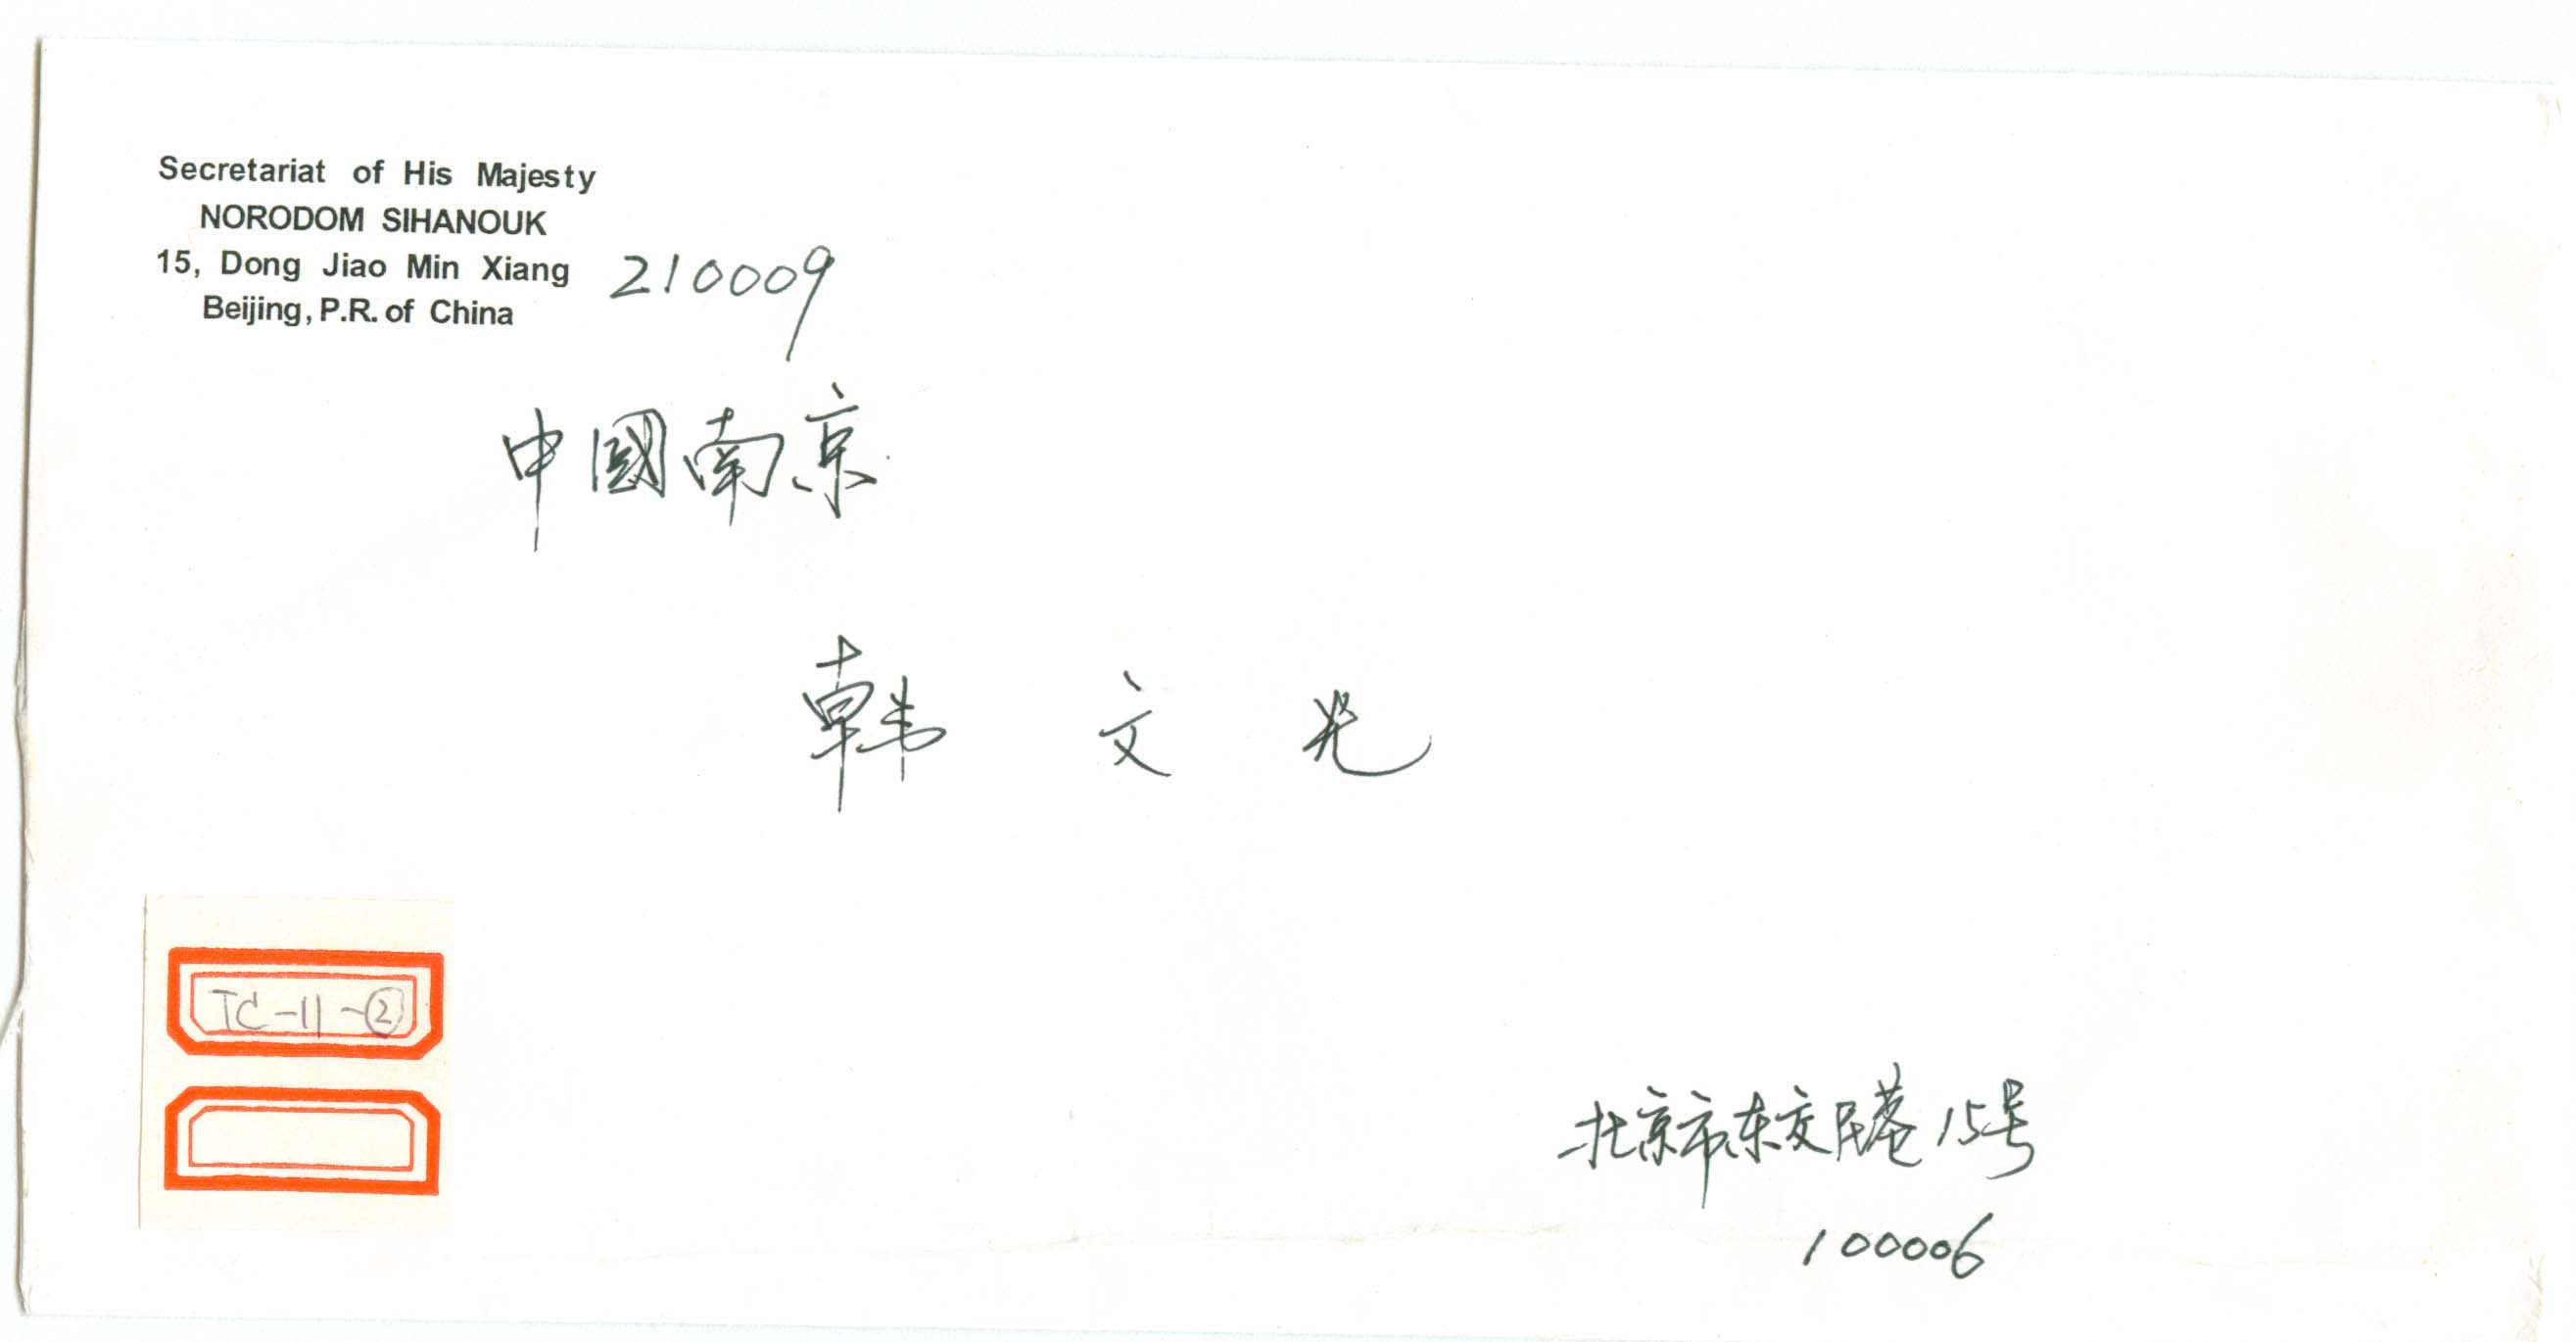 Secretariat of His Majesty
NORODOM SIHANOUK
15, Dong Jiao Min Xiang
Beijing, P.R. of China
210009
中國南京
韩 文 光
TC-11-②
北京市东交民巷15号
100006